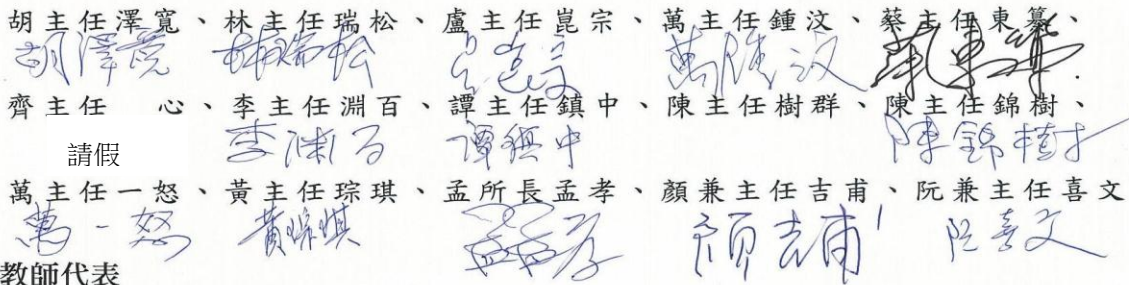 胡主任澤寬、林主任瑞松、盧主任崑宗、萬主任鍾汶、蔡主任東纂、
胡澤寬 林瑞松 盧崑宗 萬鍾汶 蔡東纂
齊主任 心、李主任淵百、譚主任鎮中、陳主任樹群、陳主任錦樹、
請假 李淵百 譚鎮中 陳錦樹
萬主任一怒、黃主任琮琪、孟所長孟孝、顏兼主任吉甫、阮兼主任喜文
萬一怒 黃琮琪 孟孟孝 顏吉甫 阮喜文
教師代表